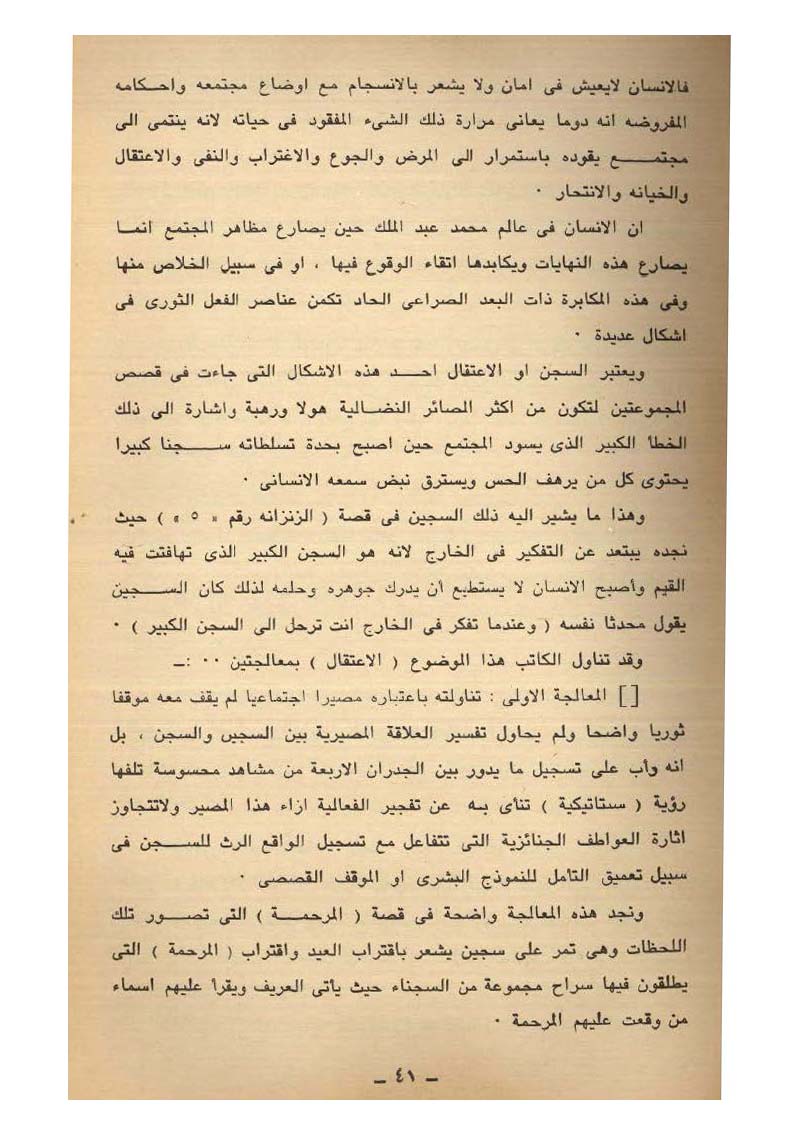 فالانسان لايعيش فى امان ولا يشعر بالانسجام مع اوضاع مجتمعه واحـكامه
المفروضه انه دوما يعانى مرارة ذلك الشىء المفقود فى حياته لانه ينتمى الى
مجتمـــــع يقوده باستمرار الى المرض والجوع والاغتراب والنفى والاعتقال
والخيانه والانتحار ٠
ان الانسان فى عالم محمد عبد الملك حين يصارع مظاهر المجتمع انمـا
يصارع هذه النهايات ويكابدها اتقاء الوقوع فيها ، او فى سبيل الخلاص منها
وفى هذه المكابرة ذات البعد الصراعى الحاد تكمن عناصر الفعل الثورى فى
اشكال عديدة ٠
ويعتبر السجن او الاعتقال احـــد هذه الاشكال التى جاءت فى قصص
المجموعتين لتكون من اكثر المصائر النضـالية هولا ورهبة واشارة الى ذلك
الخطأ الكبير الذى يسود المجتمع حين اصبح بحدة تسلطاته ســـجنا كبيرا
يحتوى كل من يرهف الحس ويسترق نبض سمعه الانسانى ٠
وهذا ما يشير اليه ذلك السجين فى قصة ( الزنزانه رقم « ٥ » ) حيث
نجده يبتعد عن التفكير فى الخارج لانه هو السجن الكبير الذى تهافتت فيه
القيم وأصبح الانسان لا يستطيع أن يدرك جوهره وحلمه لذلك كان الســـجين
يقول محدثا نفسه ( وعندما تفكر فى الخارج انت ترحل الى السجن الكبير ) ٠
وقد تناول الكاتب هذا الموضوع ( الاعتقال ) بمعالجتين ٠٠ :ــ
[] المعالجة الاولى : تناولته باعتباره مصيرا اجتماعيا لم يقف معه موقفا
ثوريا واضحا ولم يحاول تفسير العلاقة المصيرية بين السجين والسجن ، بل
انه وأب على تسجيل ما يدور بين الجدران الاربعة من مشاهد محسوسة تلفها
رؤية ( ستاتيكية ) تنأى بـه عن تفجير الفعالية ازاء هذا المصير ولاتتجاوز
اثارة العواطف الجنائزية التى تتفاعل مع تسجيل الواقع الرث للســـجن فى
سبيل تعميق التأمل للنموذج البشرى او الموقف القصصى ٠
ونجد هذه المعالجة واضحة فى قصة ( المرحمــــة ) التى تصـــور تلك
اللحظات وهى تمر على سجين يشعر باقتراب العيد واقتراب ( المرحمة ) التى
يطلقون فيها سراح مجموعة من السجناء حيث يأتى العريف ويقرأ عليهم اسماء
من وقعت عليهم المرحمة ٠
ــ ٤١ ــ